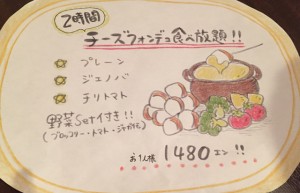 2時間
チーズフォンデュ食べ放題!!
プレーン
ジェノバ
チリトマト
野菜Set付き!!
(ブロッコリー・トマト・じゃが芋)
お1人様 1480エン!!